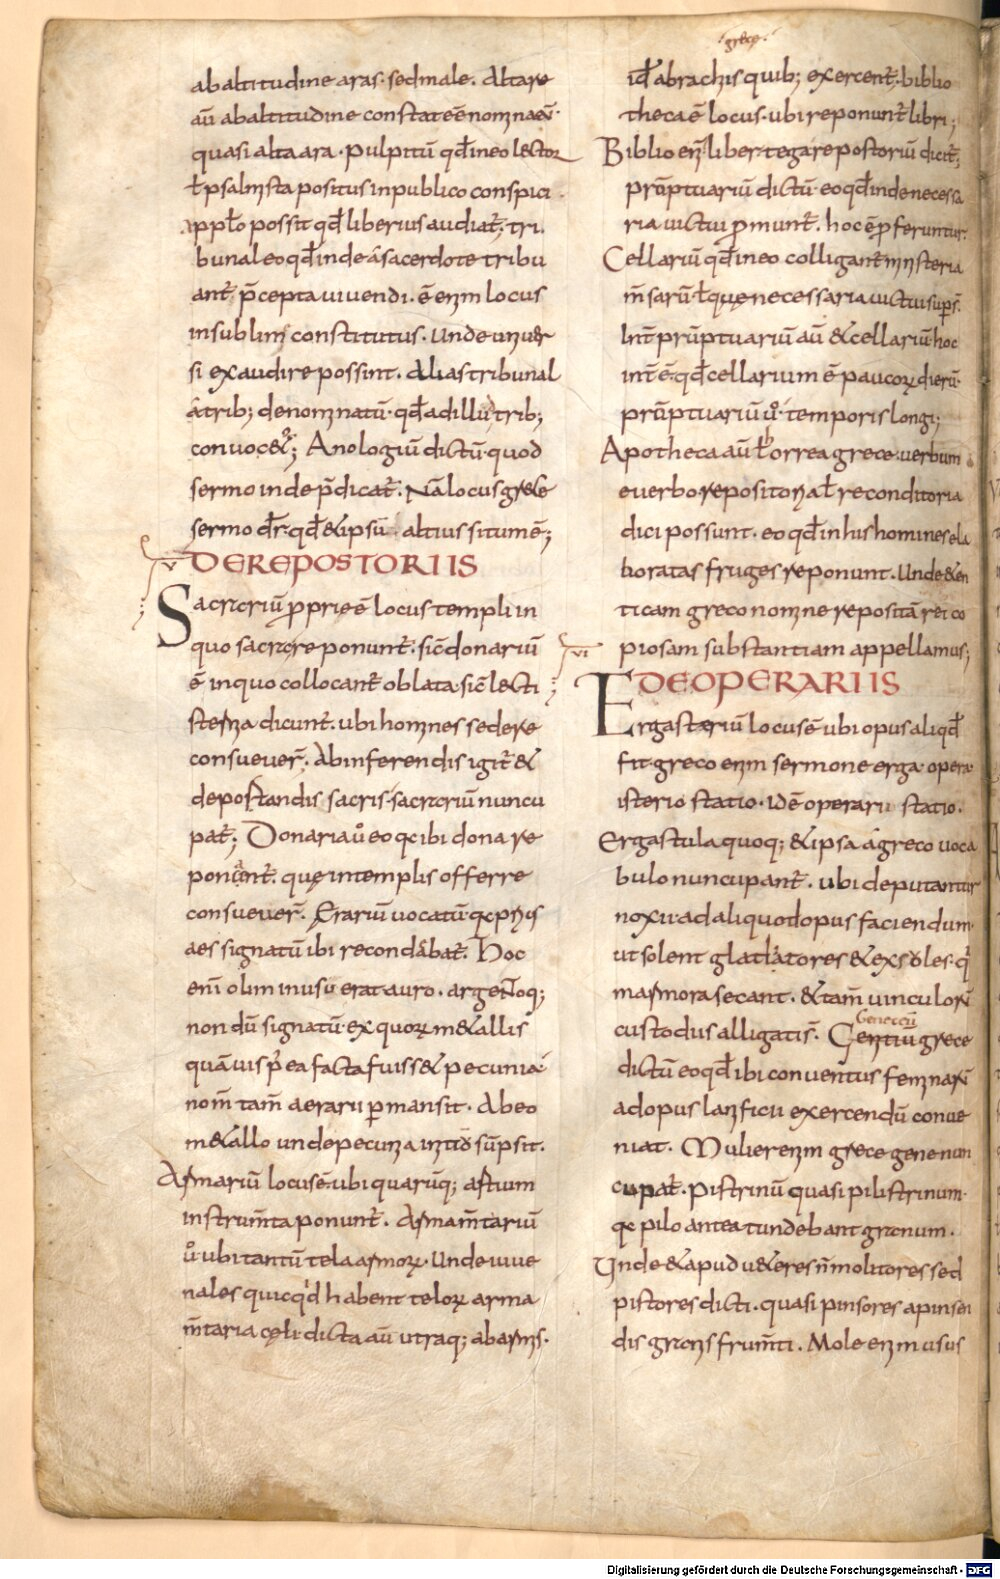 ab altitudine aras. sed male. Altare
aū ab altitudine constat eē nominaū
quasi alta ara. pulpitū qđ in eo lector
ł psalmista positus in publico conspici
a ppło possit qđ liberius audiat̄; tri
bunal eo qđ inde á sacerdote tribu
ant̄ p̄cepta uiuendi. ē enim locus
in sublimi constitutus. unde uniuer
si exaudire possint. Alias tribunal
á trib; denominatū. qđ ad illud trib;
conuocent̄; Anologiū dictū quod
sermo inde p̄dicat̄. Nā locus grece
sermo dr̄. qđ & ipsū altius situm ē;
V DE REPOSTORIIS
Sacrariū pprie ē locus templi in
quo sacra reponunt̄. sic̄ donariū
ē in quo collocant̄ oblata. sic̄ lecti
sternia dicunt̄. ubi homines sedere
consueuer̄. Ab inferendis igit̄ &
deportandis sacris. sacrariū nuncu
pat̄; Donaria ů eo qđ ibi dona re
ponant̄. quę in templis offerre
consueuer̄. Erariū uocatū. qđ prius
aes signatū ibi recondábat̄. Hoc
eni olim in usu erat auro. argentoq;
nondū signatū. ex quorum metallis
quāuis p̄ea facta fuiss& pecunia
nom̄ tam̄ aerarii pmansit. Ab eo
m&allo unde pecunia initiū sūpsit.
Armariū locus ē. ubi quarūq; artium
instrum̄ta ponunt̄. Armam̄tariū
ů ubi tantū tela armorum. Unde iuue
nales quicqđ habent telorum arma
m̄taria cęli. dicta aū utraq; ab armis.
grece
id ̄a brachis quib; exercent̄. biblio
theca ē locus. ubi reponunt̄ libri;
Biblio eni liber tega repostoriū dicit̄;
prūptuariū dictū. eo qđ inde necessa
ria uictui pmunt̄. hoc ē pferuntur.
Cellariū qđ in eo colligant̄ ministeria
m̄sarū. ł quę necessaria uictui sup̄s̄.
Int̄ prūptuariū aū & cellariū. hoc
int̄ē. qđ cellarium ē paucorum dierū.
prūptuariū ů. temporis longi;
Apotheca aū ł orrea grece. uerbum
e uerbo repositoria ł reconditoria
dici possunt. eo qđ in his homines ela
boratas fruges reponunt. Unde & en
ticam greco nomine repositā rei co
piosam substantiam appellamus;
VI DE OPERARIIS
Ergasteriū locus ē ubi opus aliqđ
fit. greco enim sermone erga. opera.
isterio statio. idē operarii statio.
Ergastula quoq; & ipsa á greco uoca
bulo nuncupant̄. ubi deputantur
noxii ad aliquod opus faciendum.
ut solent gladiatores & exsoles. qi
marmora secant. & tam̄ uinculorū
custodiis alligatis̄. Genetiū grece
Geneceū
dictū eo qđ ibi conuentus feminarū
ad opus lanificii exercendū conue
niat. Mulier enim grece gene nun
cupat̄. Pistrinū quasi pilistrinum.
qđ pilo antea tundebant granum.
Unde & apud u&eres ñ molitores sed
pistores dicti. quasi pinsores a pinsen
dis granis frum̄ti. Mole enim usus
Digitalisierung gefördert durch die Deutsche Forschungsgemeinschaft - DFG